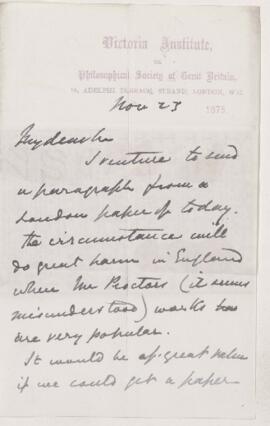 Victoria Institute,
OR
Philosophical Society of Great Britain,
ADELPHI TERRACE, STRAND, LONDON, W.C.
Nov 23
1875
My dear Sir
I venture to send
a paragraph from a
London paper of today.
the circumstance will
do great harm in England
where Mr Proctors (it seems
misunderstood) works
are very popular.
It would be of great value
if we could get a paper